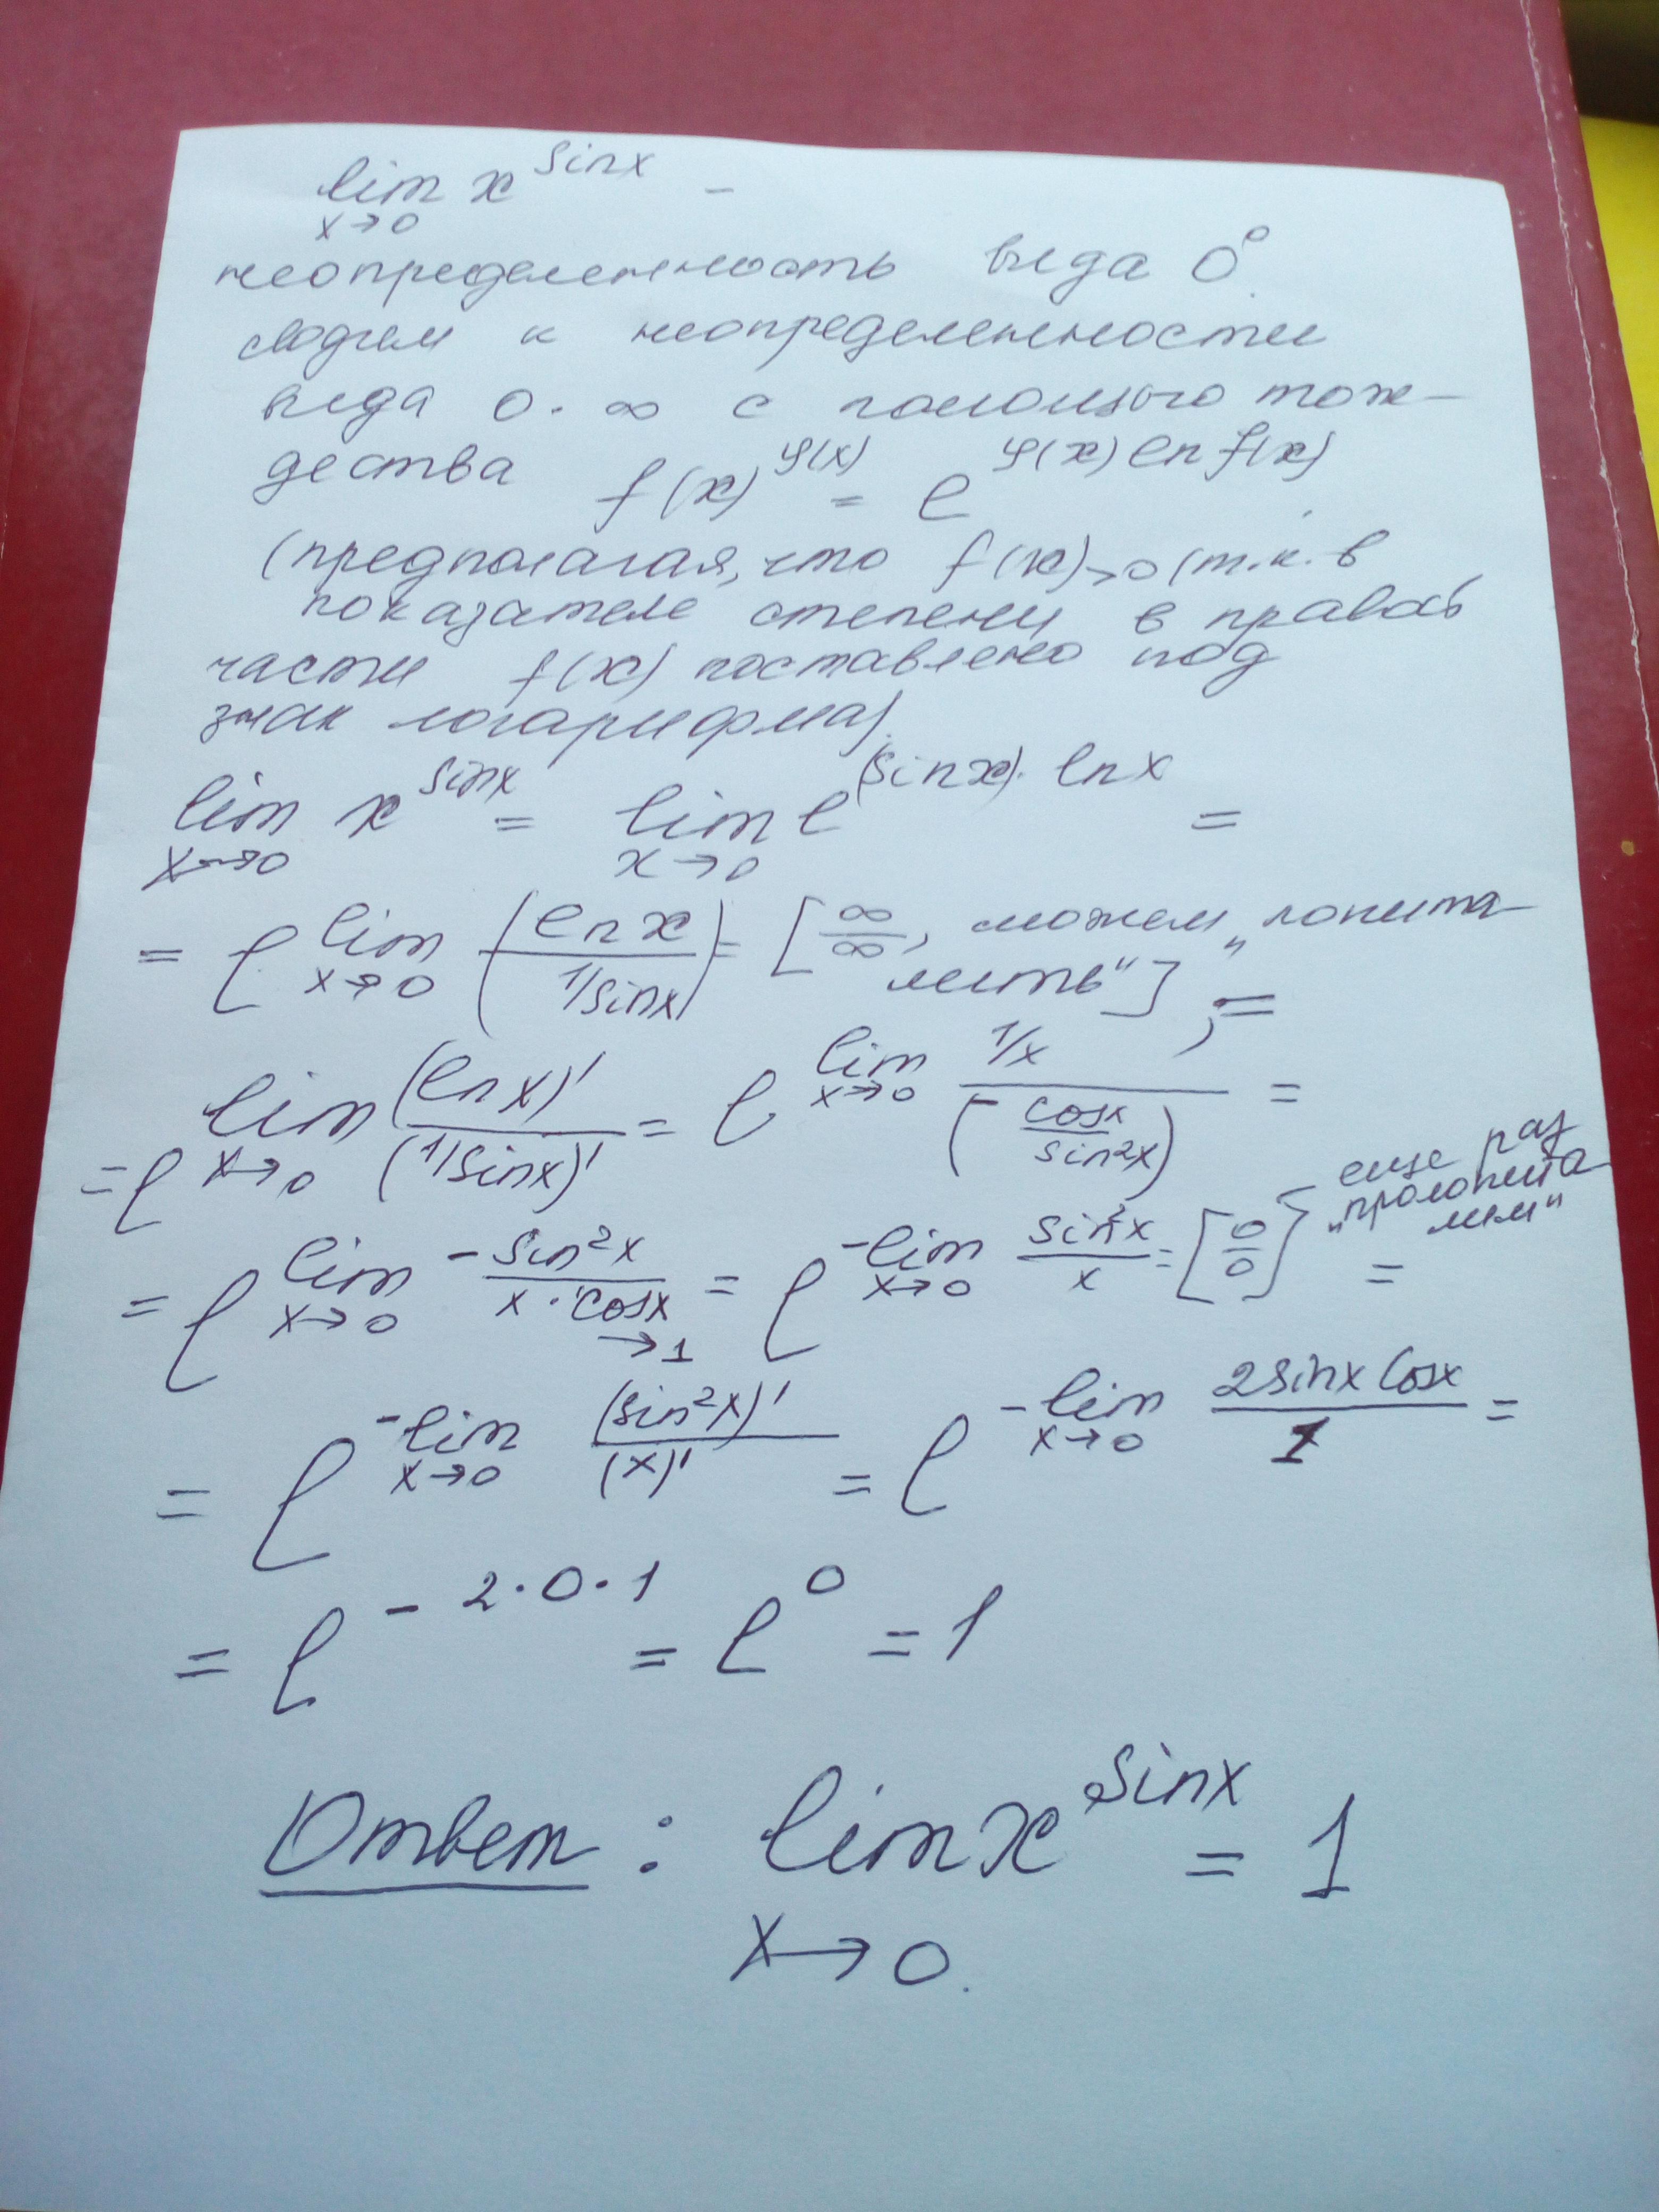 lim x^sinx –
x→0
неопределенность вида 0^0.
сводим к неопределенности
вида 0·∞ с помощью тож-
дества f(x)^φ(x) = e^φ(x) ln f(x)
(предполагая, что f(x)>0 (т.к. в
показателе степени в правой
части f(x) поставлено под
знак логарифма).
lim x→0 x^sinx = lim x→0 e^(sinx)·lnx =
= e^lim x→0 (ln x / 1/sinx) = [∞/∞, можем „лопита-
лить“], =
= e^lim x→0 (ln x)' / (1/sinx)' = e^lim x→0 1/x / (– cosx / sin²x) =
= e^lim x→0 – sin²x / x·cosx →1 = e^–lim x→0 sin²x / x = [0/0] =
еще раз
„пролопита
лим“
= e^–lim x→0 (sin²x)' / (x)' = e^–lim x→0 2sinx cosx / 1 =
= e^–2·0·1 = e^0 = 1
Ответ: lim x^sinx = 1
x→0.